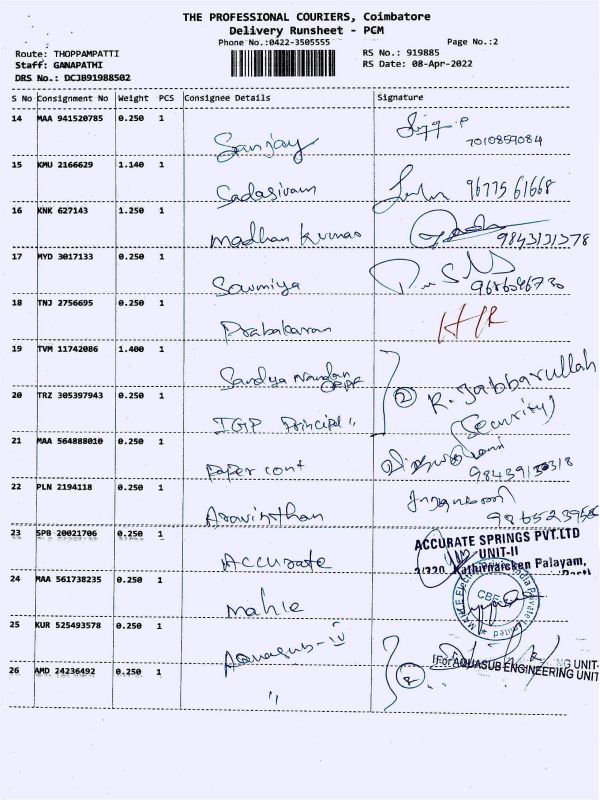 THE PROFESSIONAL COURIERS, Coimbatore
Delivery Runsheet - PCM
Phone No.:0422-3505555 Page No.:2
Route: THOPPAMPATTI RS No.: 919885
Staff: GANAPATHI RS Date: 08-Apr-2022
DRS No.: DCJ891988502
S No Consignment No Weight PCS Consignee Details Signature
14 MAA 941520785 0.250 1 Sanjay
7010859084
15 KMU 2166629 1.140 1 Sadasivam 96775 61668
16 KNK 627143 1.250 1 Madhan Kumar 9843131378
17 MYD 3017133 0.250 1 Sowmiya
18 TNJ 2756695 0.250 1 Prabakaran
19 TVM 11742086 1.400 1 Sandya Nandan
20 TRZ 305397943 0.250 1 IGP Principal " 2 K. Jabbarullah
(Security)
21 MAA 564888010 0.250 1 Paper cont
22 PLN 2194118 0.250 1 Aravinthan
23 SPB 20021706 0.250 1 Accurate
ACCURATE SPRINGS PVT.LTD
UNIT-II
Kathirnaicken Palayam,
24 MAA 561738235 0.250 1 Mahle
CBE
25 KUR 525493578 0.250 1 Aquasub-IV
26 AMD 24236492 0.250 1 " 2
For AQUASUB ENGINEERING UNIT